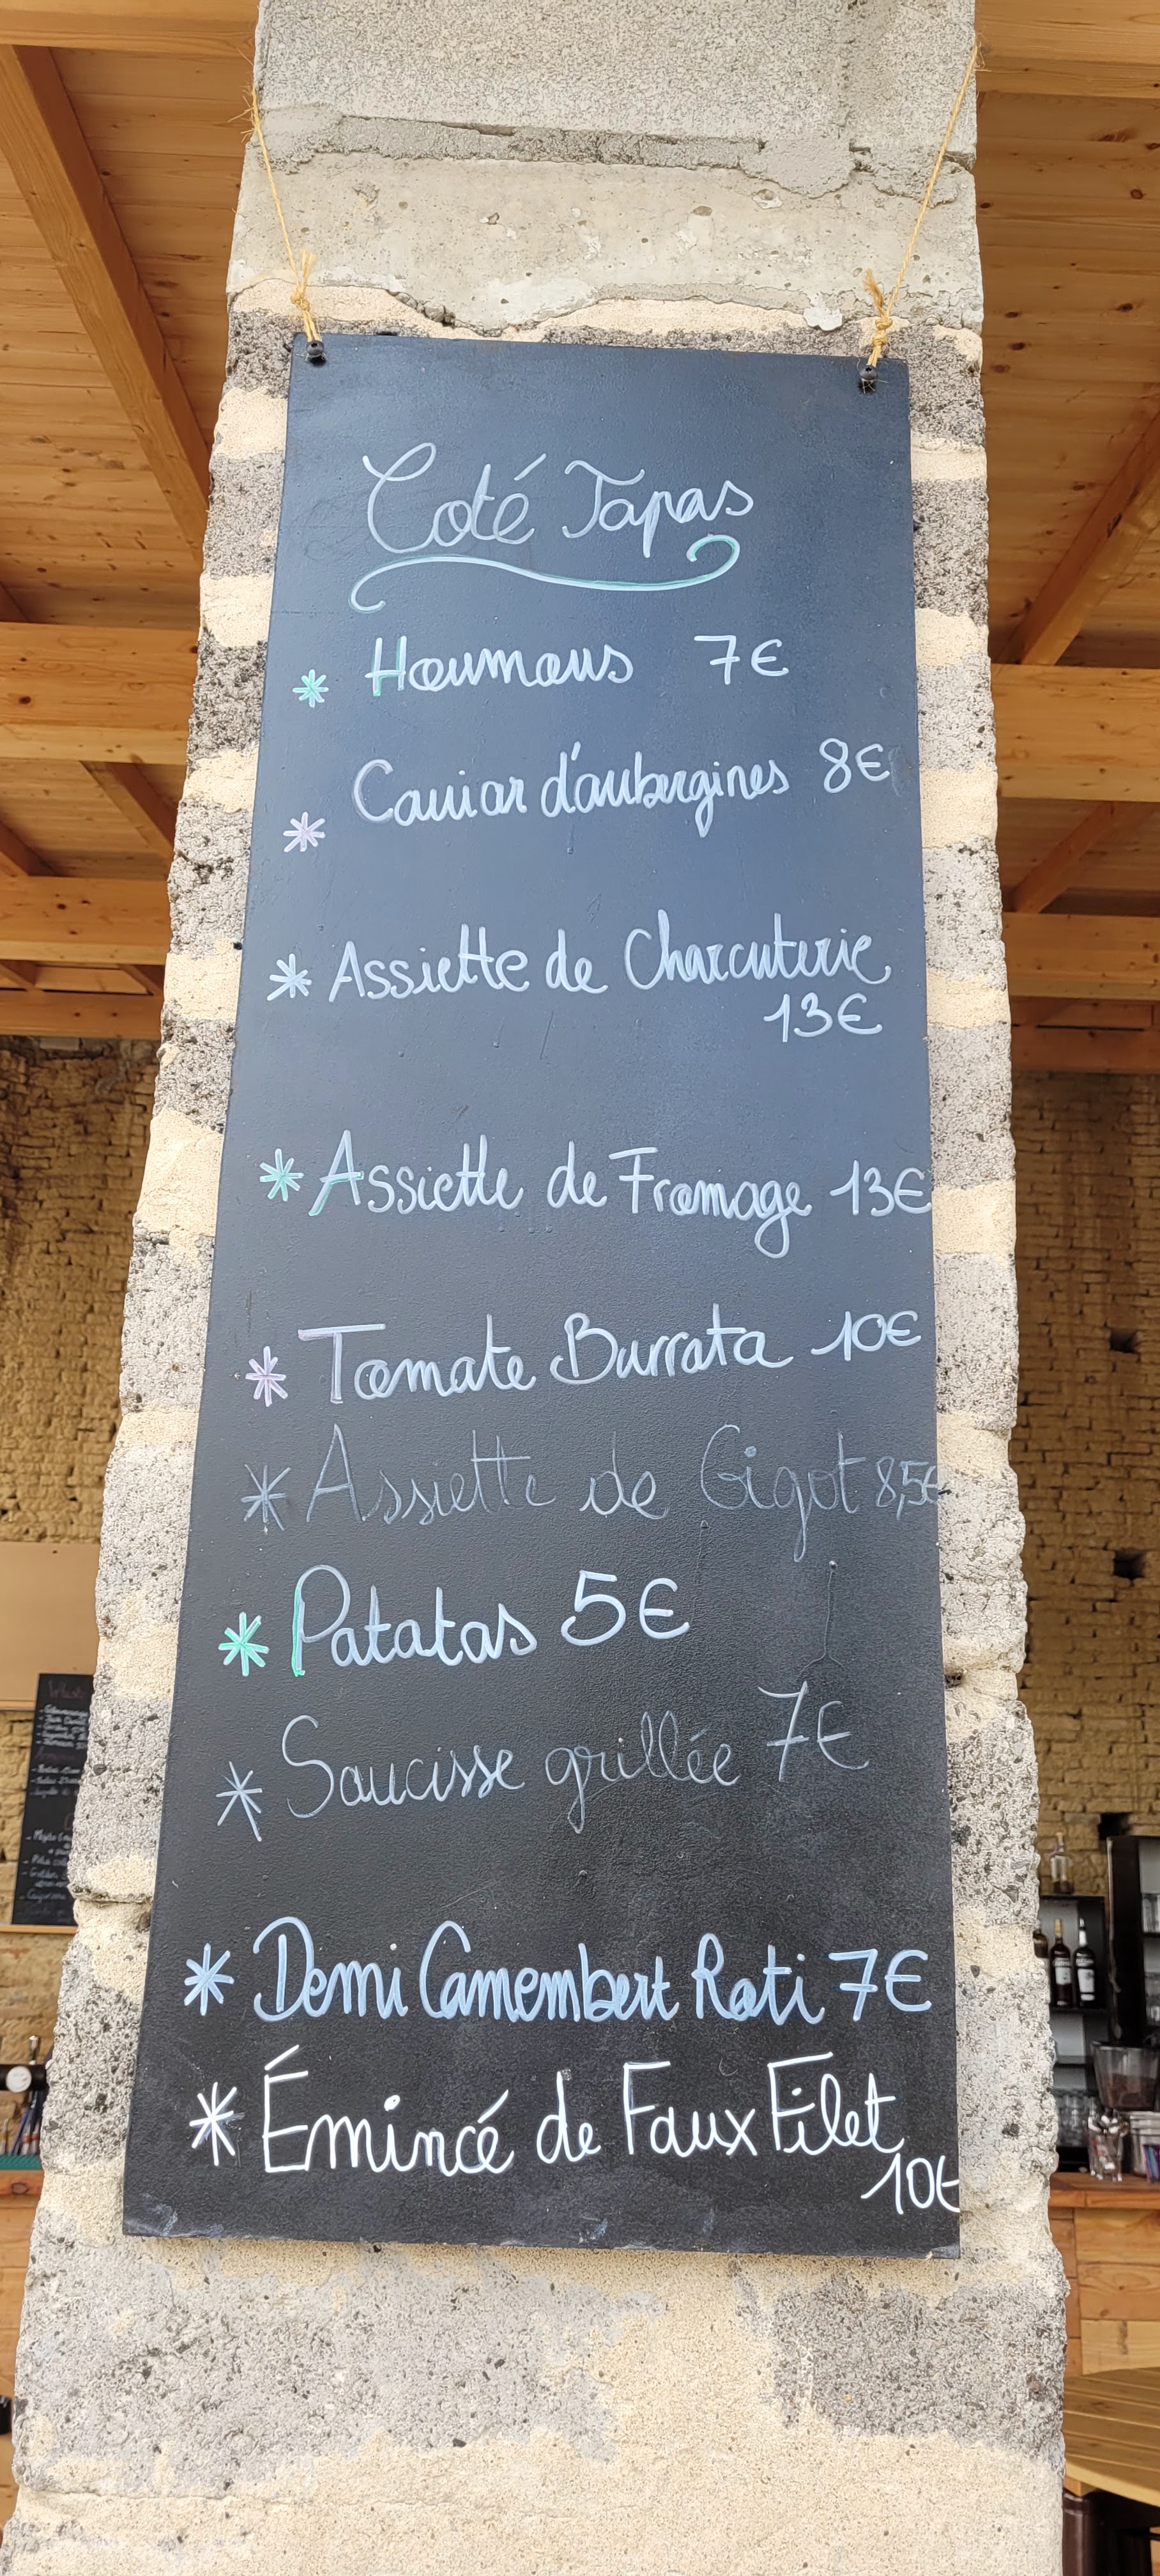 Coté Tapas
* Houmous 7€
* Caviar d'aubergines 8€
* Assiette de Charcuterie
13€
* Assiette de Fromage 13€
* Tomate Burrata 10€
* Assiette de Gigot 8,5€
* Patatas 5€
* Saucisse grillée 7€
* Demi Camembert Roti 7€
* Émincé de Faux Filet
10€